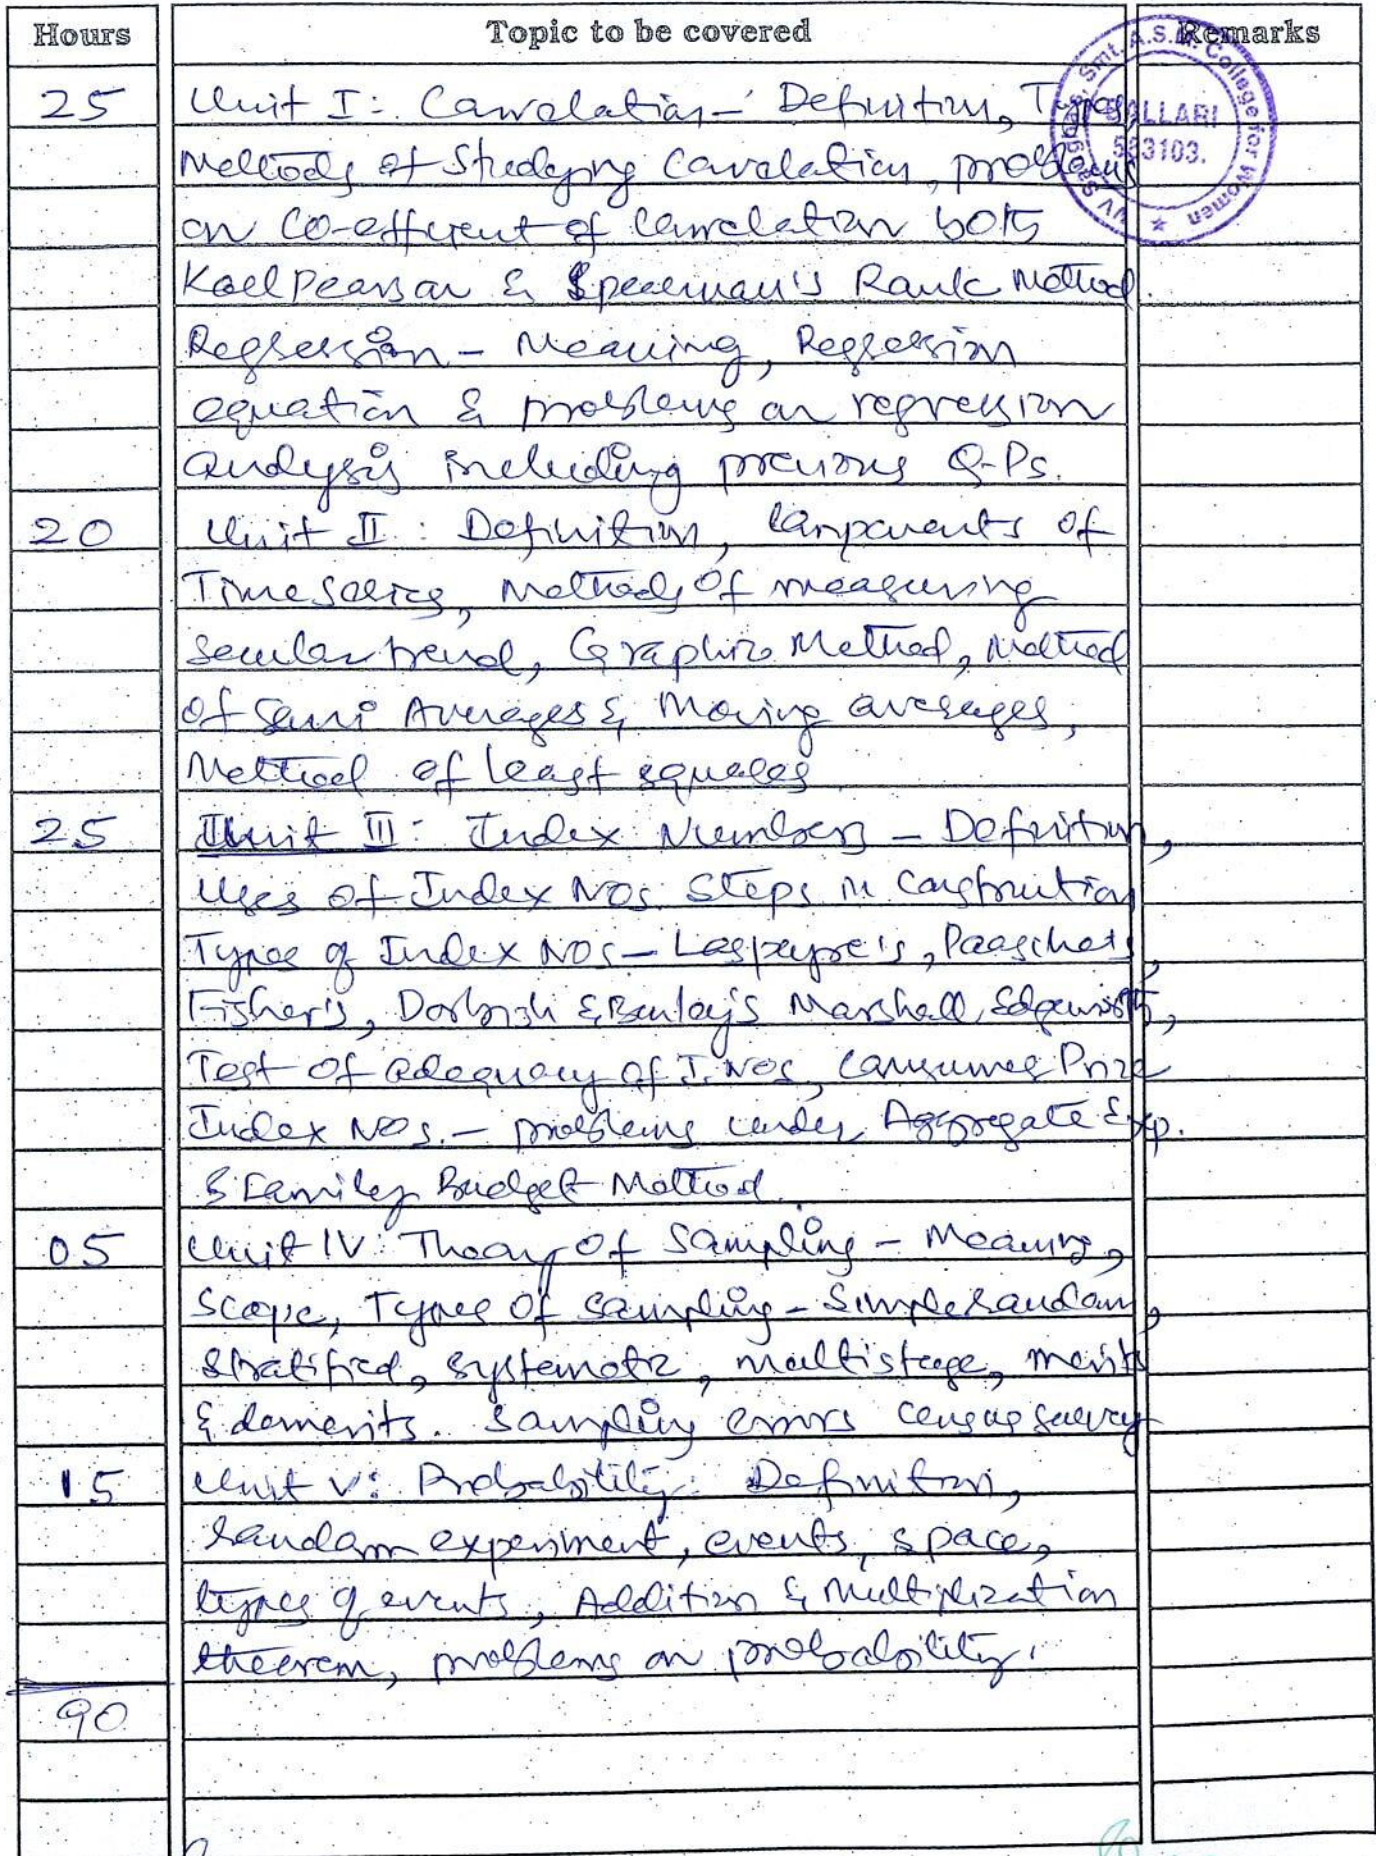 Hours Topic to be covered Remarks
Smt. A.S.M. College for Women
BALLARI
583103.
25 Unit I: Correlation - Definition, Types,
Methods of Studying Correlation, problems
on Co-efficient of Correlation both
Karl Pearson & Spearman's Rank Method.
Regression - Meaning, Regression
equation & problems on regression
analysis including previous Q-Ps.
20 Unit II: Definition, Components of
Time Series, Methods of measuring
secular trend, Graphic Method, Method
of Semi Averages & Moving averages,
Method of least squares
25 Unit III: Index Numbers - Definition,
Uses of Index Nos. Steps in Construction
Types of Index Nos - Laspeyre's, Paasche's,
Fisher's, Dorbish & Bowley's Marshall, Edgeworth,
Test of adequacy of I. Nos, Consumer Price
Index Nos. - problems under Aggregate Exp.
& Family Budget Method.
05 Unit IV: Theory of Sampling - Meaning,
Scope, Types of Sampling - Simple random,
Stratified, systematic, multistage, merits
& demerits. Sampling errors census survey
15 Unit V: Probability: Definition,
random experiment, events, space,
types of events, Addition & Multiplication
theorem, problems on probability.
90